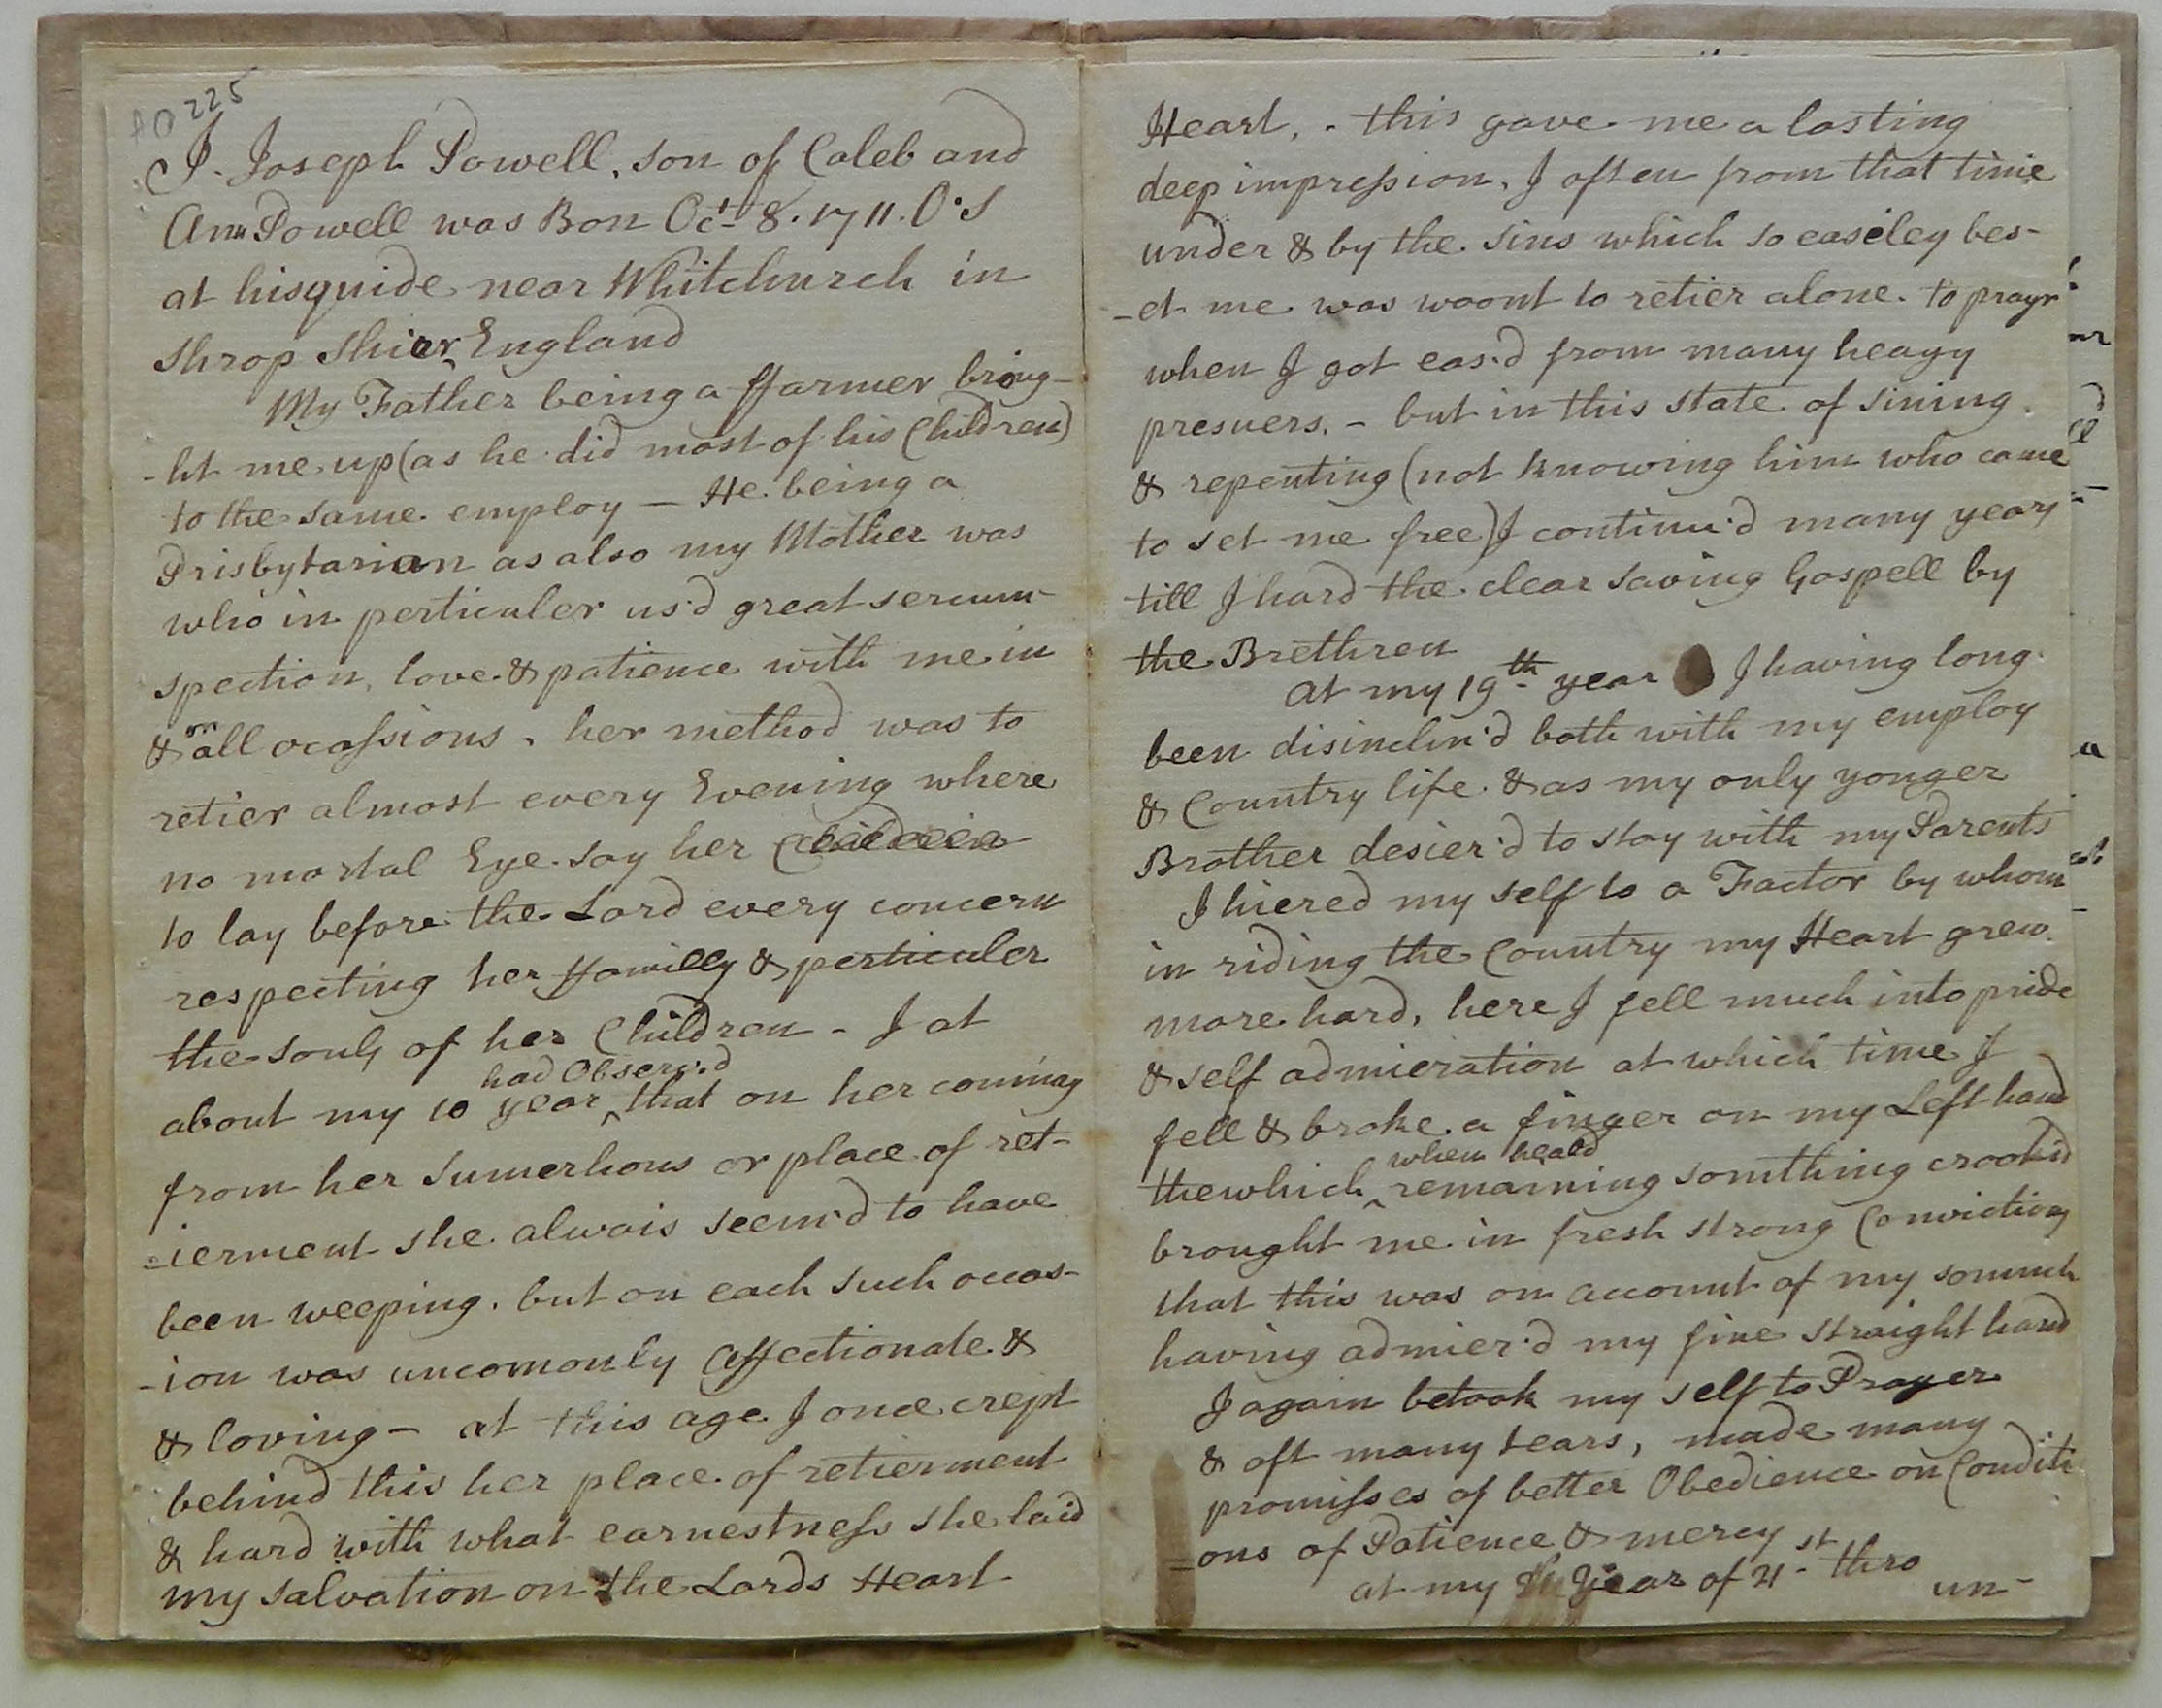 A0225
I. Joseph Powell, son of Caleb and
Ann Powell was Bon Oct 8. 1711. O.S
at hisquide near Whitchurch in
Shrop Shier England
My Father being a ffarmer broug-
-ht me up (as he did most of his Children)
to the same employ - He being a
Prisbytarian as also my Mother was
who in perticuler us'd great sercum-
spection, love & patience with me in
& on all ocassions, her method was to
retier almost every Evening where
no mortal Eye say her
to lay before the Lord every concern
respecting her ffamilly & perticuler
the souls of her Children - I at
had Observ'd
about my 10 year ^ that on her coming
from her Sumerhous or place of ret-
-ierment she alwais seem'd to have
been weeping, but on each such occas-
-ion was uncomonly affectionate &
& loving - at this age I once crept
behind this her place of retierment
& hard with what earnestness she laid
my salvation on the Lords Heart
Heart, - this gave me a lasting
deep impression, I often from that time
under & by the sins which so easeley bes-
-et me was woont to retier alone to prayr
when I got eas'd from many heavy
presuers, - but in this state of sining
& repenting (not knowing him who came
to set me free) I continu'd many years
till I hard the clear saving Gospell by
the Brethren
at my 19th year I having long
been disinclin'd both with my employ
& Country life & as my only yonger
Brother desier'd to stay with my Parents
I hiered my self to a Factor by whom
in riding the Country my Heart grew
more hard, here I fell much into pride
& self admieration at which time I
fell & broke a finger on my Left hand
when heald
thewhich ^ remaining somthing crook'd
brought me in fresh strong Convictions
that this was on account of my somuch
having admier'd my fine straight hand
I again betook my self to Prayer
& oft many tears, made many
promisses of better Obedience on Conditi
-ons of Patience & mercy
at my Year of 21st thro
un-